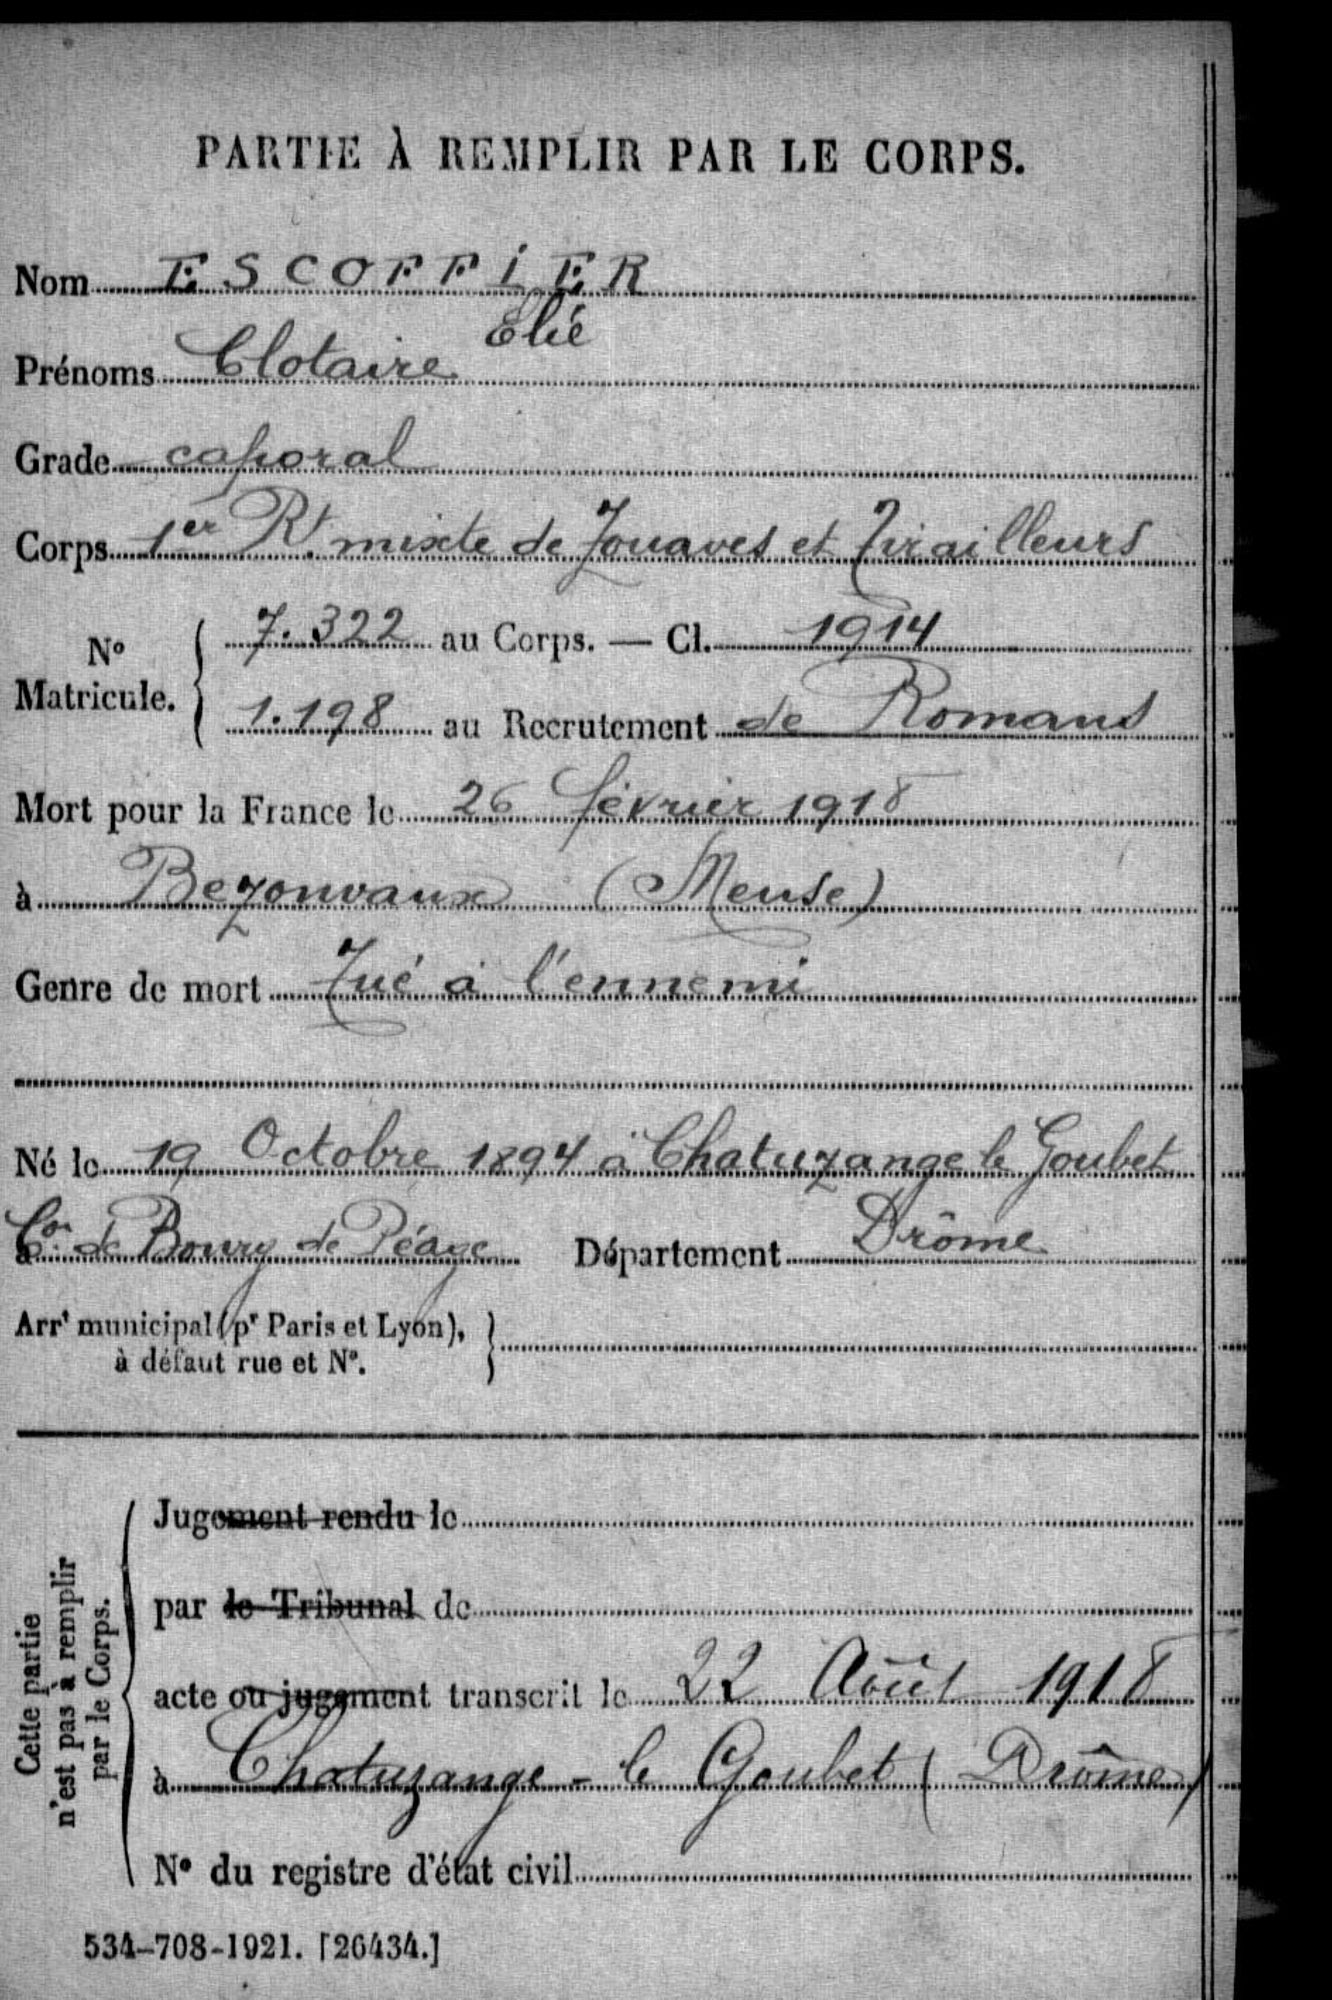 PARTIE À REMPLIR PAR LE CORPS.
Nom ESCOFFIER
Prénoms Clotaire Elie
Grade caporal
Corps 1er Rt. mixte de Zouaves et Tirailleurs
N° Matricule. { 7.322 au Corps. — Cl. 1914
1.198 au Recrutement de Romans
Mort pour la France le 26 février 1918
à Bezonvaux (Meuse)
Genre de mort Tué à l'ennemi
Né le 19 Octobre 1894 à Chatuzange le Goubet
à Con de Bourg de Péage Département Drôme
Arrt municipal (pr Paris et Lyon), à défaut rue et N°. }
Cette partie n'est pas à remplir par le Corps. {
Jugement rendu le
par le Tribunal de
acte ou jugement transcrit le 22 Août 1918
à Chatuzange - le Goubet (Drôme)
N° du registre d'état civil
534-708-1921. [26434.]